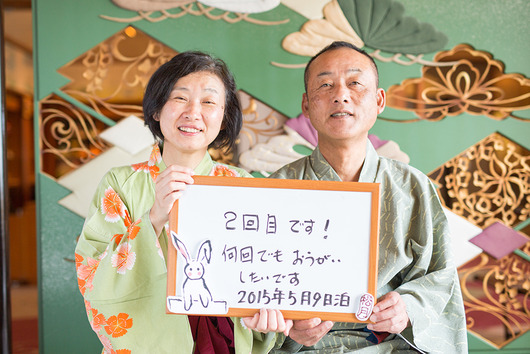 2回目です!
何回でもおうがい
したいです
2015年5月9日泊